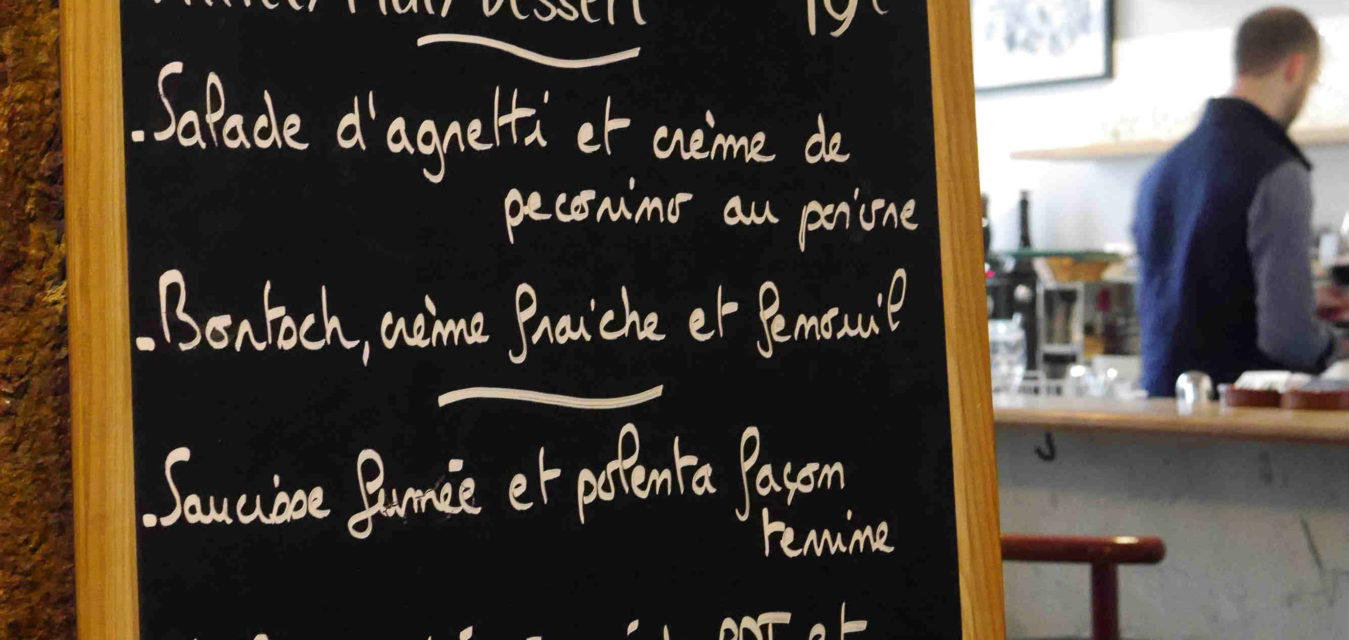 Plat/ Dessert 19€
.Salade d'agnetti et crème de
pecorino au poivre
.Bortsch, crème fraîche et fenouil
.Saucisse fumée et polenta façon
terrine
PDT et